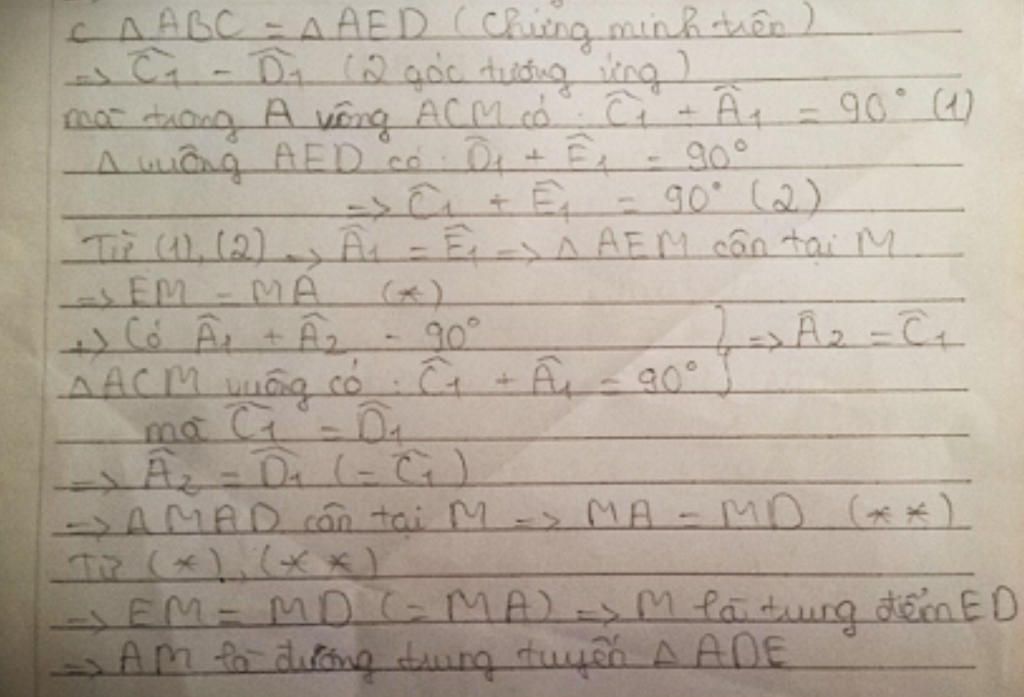 c ΔABC = ΔAED (chứng minh trên)
=> Ĉ₁ = D̂₁ (2 góc tương ứng)
mà trong Δ vuông ACM có : Ĉ₁ + Â₁ = 90° (1)
Δ vuông AED có : D̂₁ + Ê₁ = 90°
=> Ĉ₁ + Ê₁ = 90° (2)
Từ (1), (2) => Â₁ = Ê₁ => Δ AEM cân tại M
=> EM = MA (*)
+) Có Â₁ + Â₂ = 90° } => Â₂ = Ĉ₁
ΔACM vuông có : Ĉ₁ + Â₁ = 90° }
mà Ĉ₁ = D̂₁
=> Â₂ = D̂₁ (= Ĉ₁)
=> ΔMAD cân tại M => MA = MD (**)
Từ (*), (**)
=> EM = MD (= MA) => M là trung điểm ED
=> AM là đường trung tuyến Δ ADE